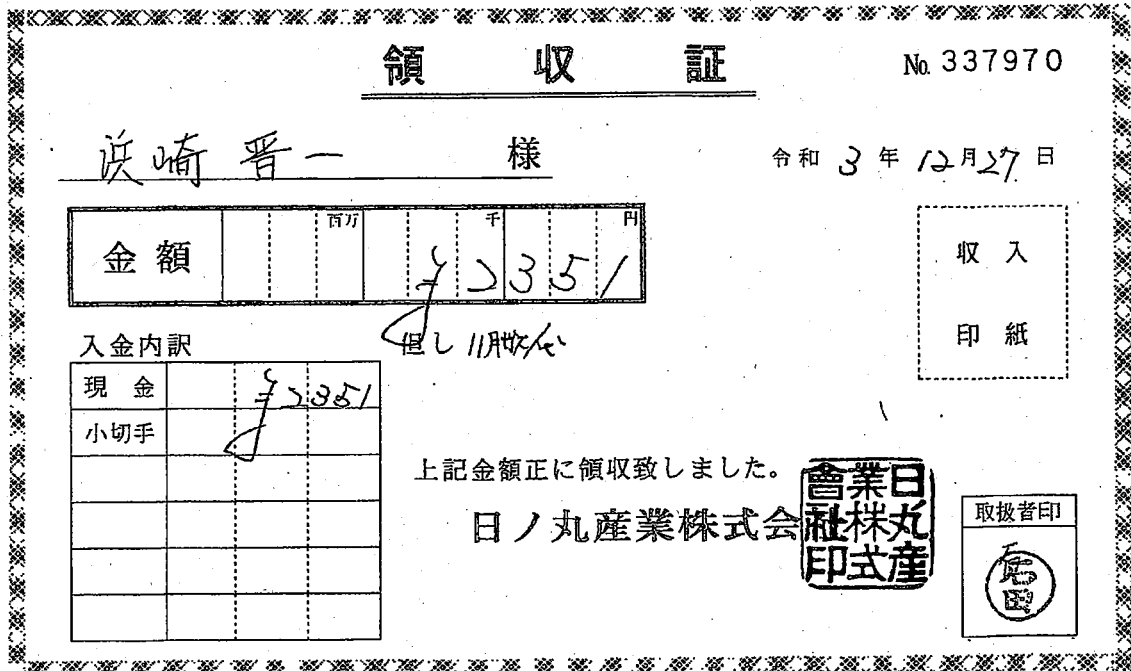 領収証
No. 337970
浜崎晋一 様
令和 3 年 12月27日
金額 百万 千 円
¥2351
収入
印紙
但し 11月ガス代
入金内訳
現金 ¥2351
小切手
上記金額正に領収致しました。
日ノ丸産業株式会
日丸産業株式會社印
取扱者印